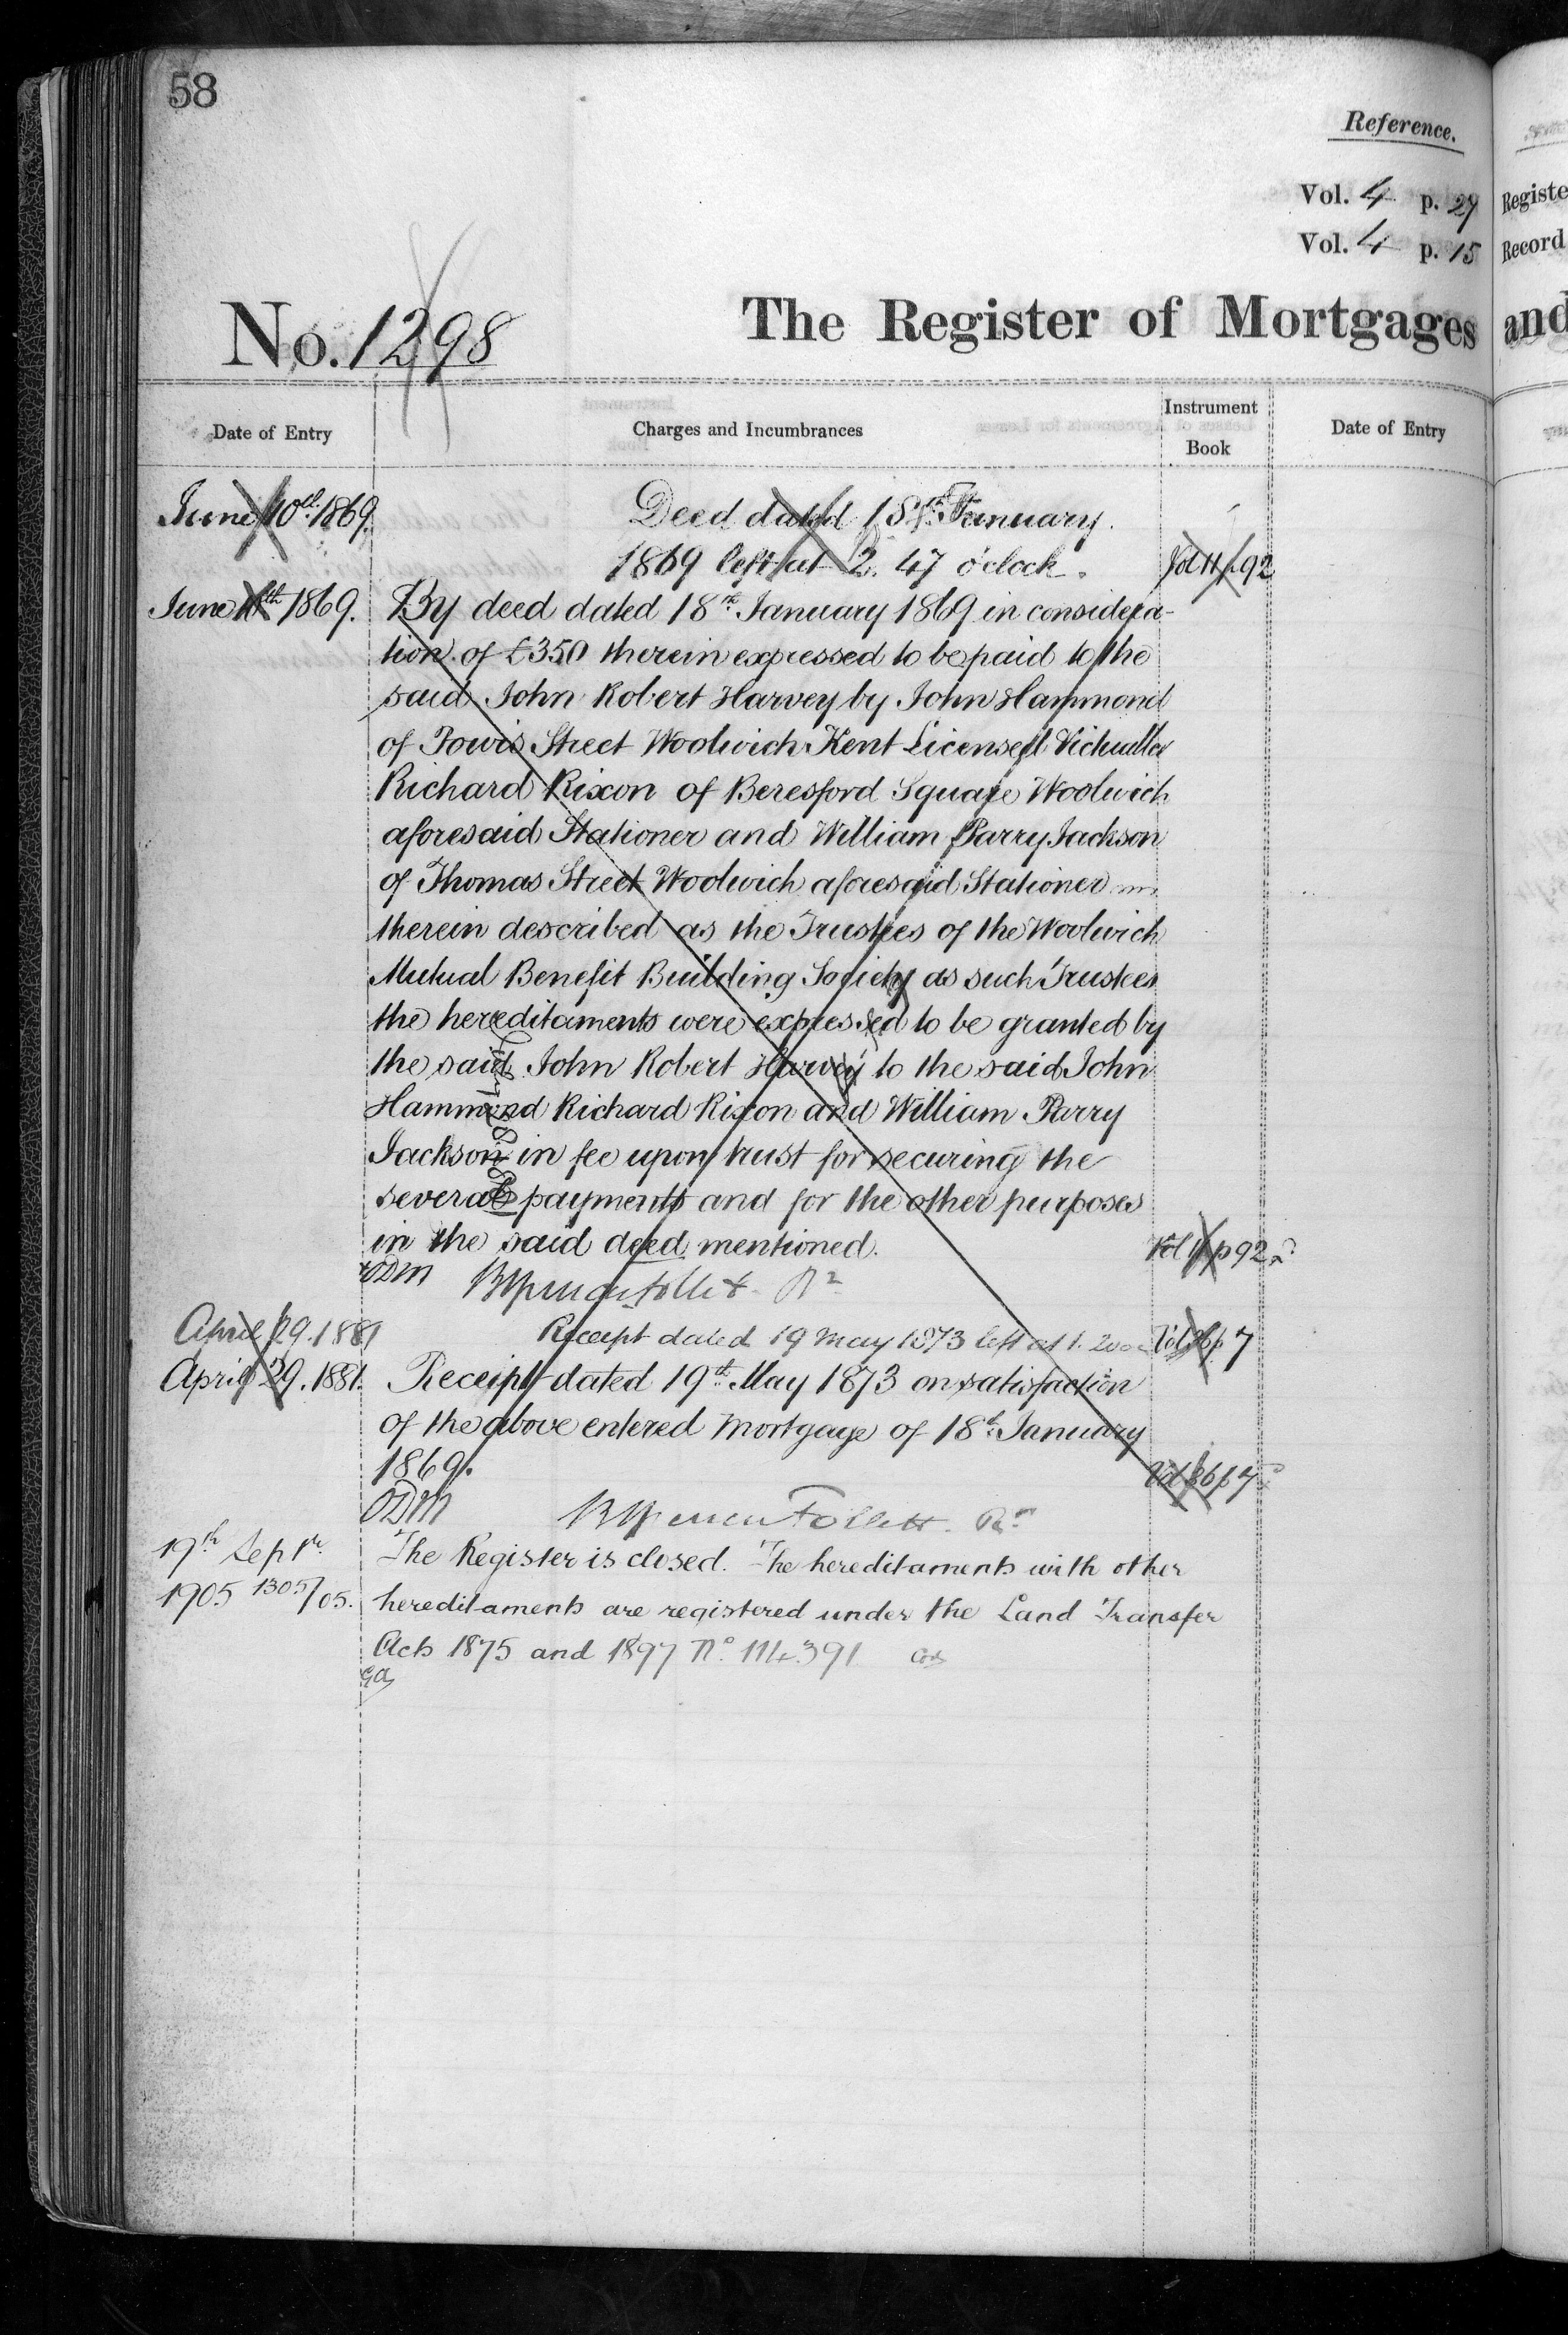 58
Reference.
Vol. 4 p. 27
Vol. 4 p. 15
Registe
Record
No. 1298
The Register of Mortgages and
Date of Entry
Charges and Incumbrances
Instrument
Book
Date of Entry
June 10th 1869.
Deed dated 18th January
1869 left at 2. 47 o'clock.
Vol 11 p 92
June 1869. By deed dated 18th January 1869 in considera-
tion of £350 therein expressed to be paid to the
said John Robert Harvey by John Hammond
of Powis Street Woolwich Kent Licensed Victualler
Richard Rixon of Beresford Square Woolwich
aforesaid Stationer and William Parry Jackson
of Thomas Street Woolwich aforesaid Stationer
therein described as the Trustees of the Woolwich
Mutual Benefit Building Society as such Trustees
the hereditaments were expressed to be granted by
the said John Robert Harvey to the said John
Hammond Richard Rixon and William Parry
Jackson in fee upon trust for securing the
several payments and for the other purposes
in the said deed mentioned.
Vol 11 p 92
ODM
April 29. 1881
Receipt dated 19 May 1873 left at 1. 20
Vol 36 p 7
April 29. 1881. Receipt dated 19th May 1873 on satisfaction
of the above entered Mortgage of 18th January
1869.
Vol 36 p 7
ODM
19th Septr.
1905 1305/05.
The Register is closed. The hereditaments with other
hereditaments are registered under the Land Transfer
Acts 1875 and 1897 No. 114391